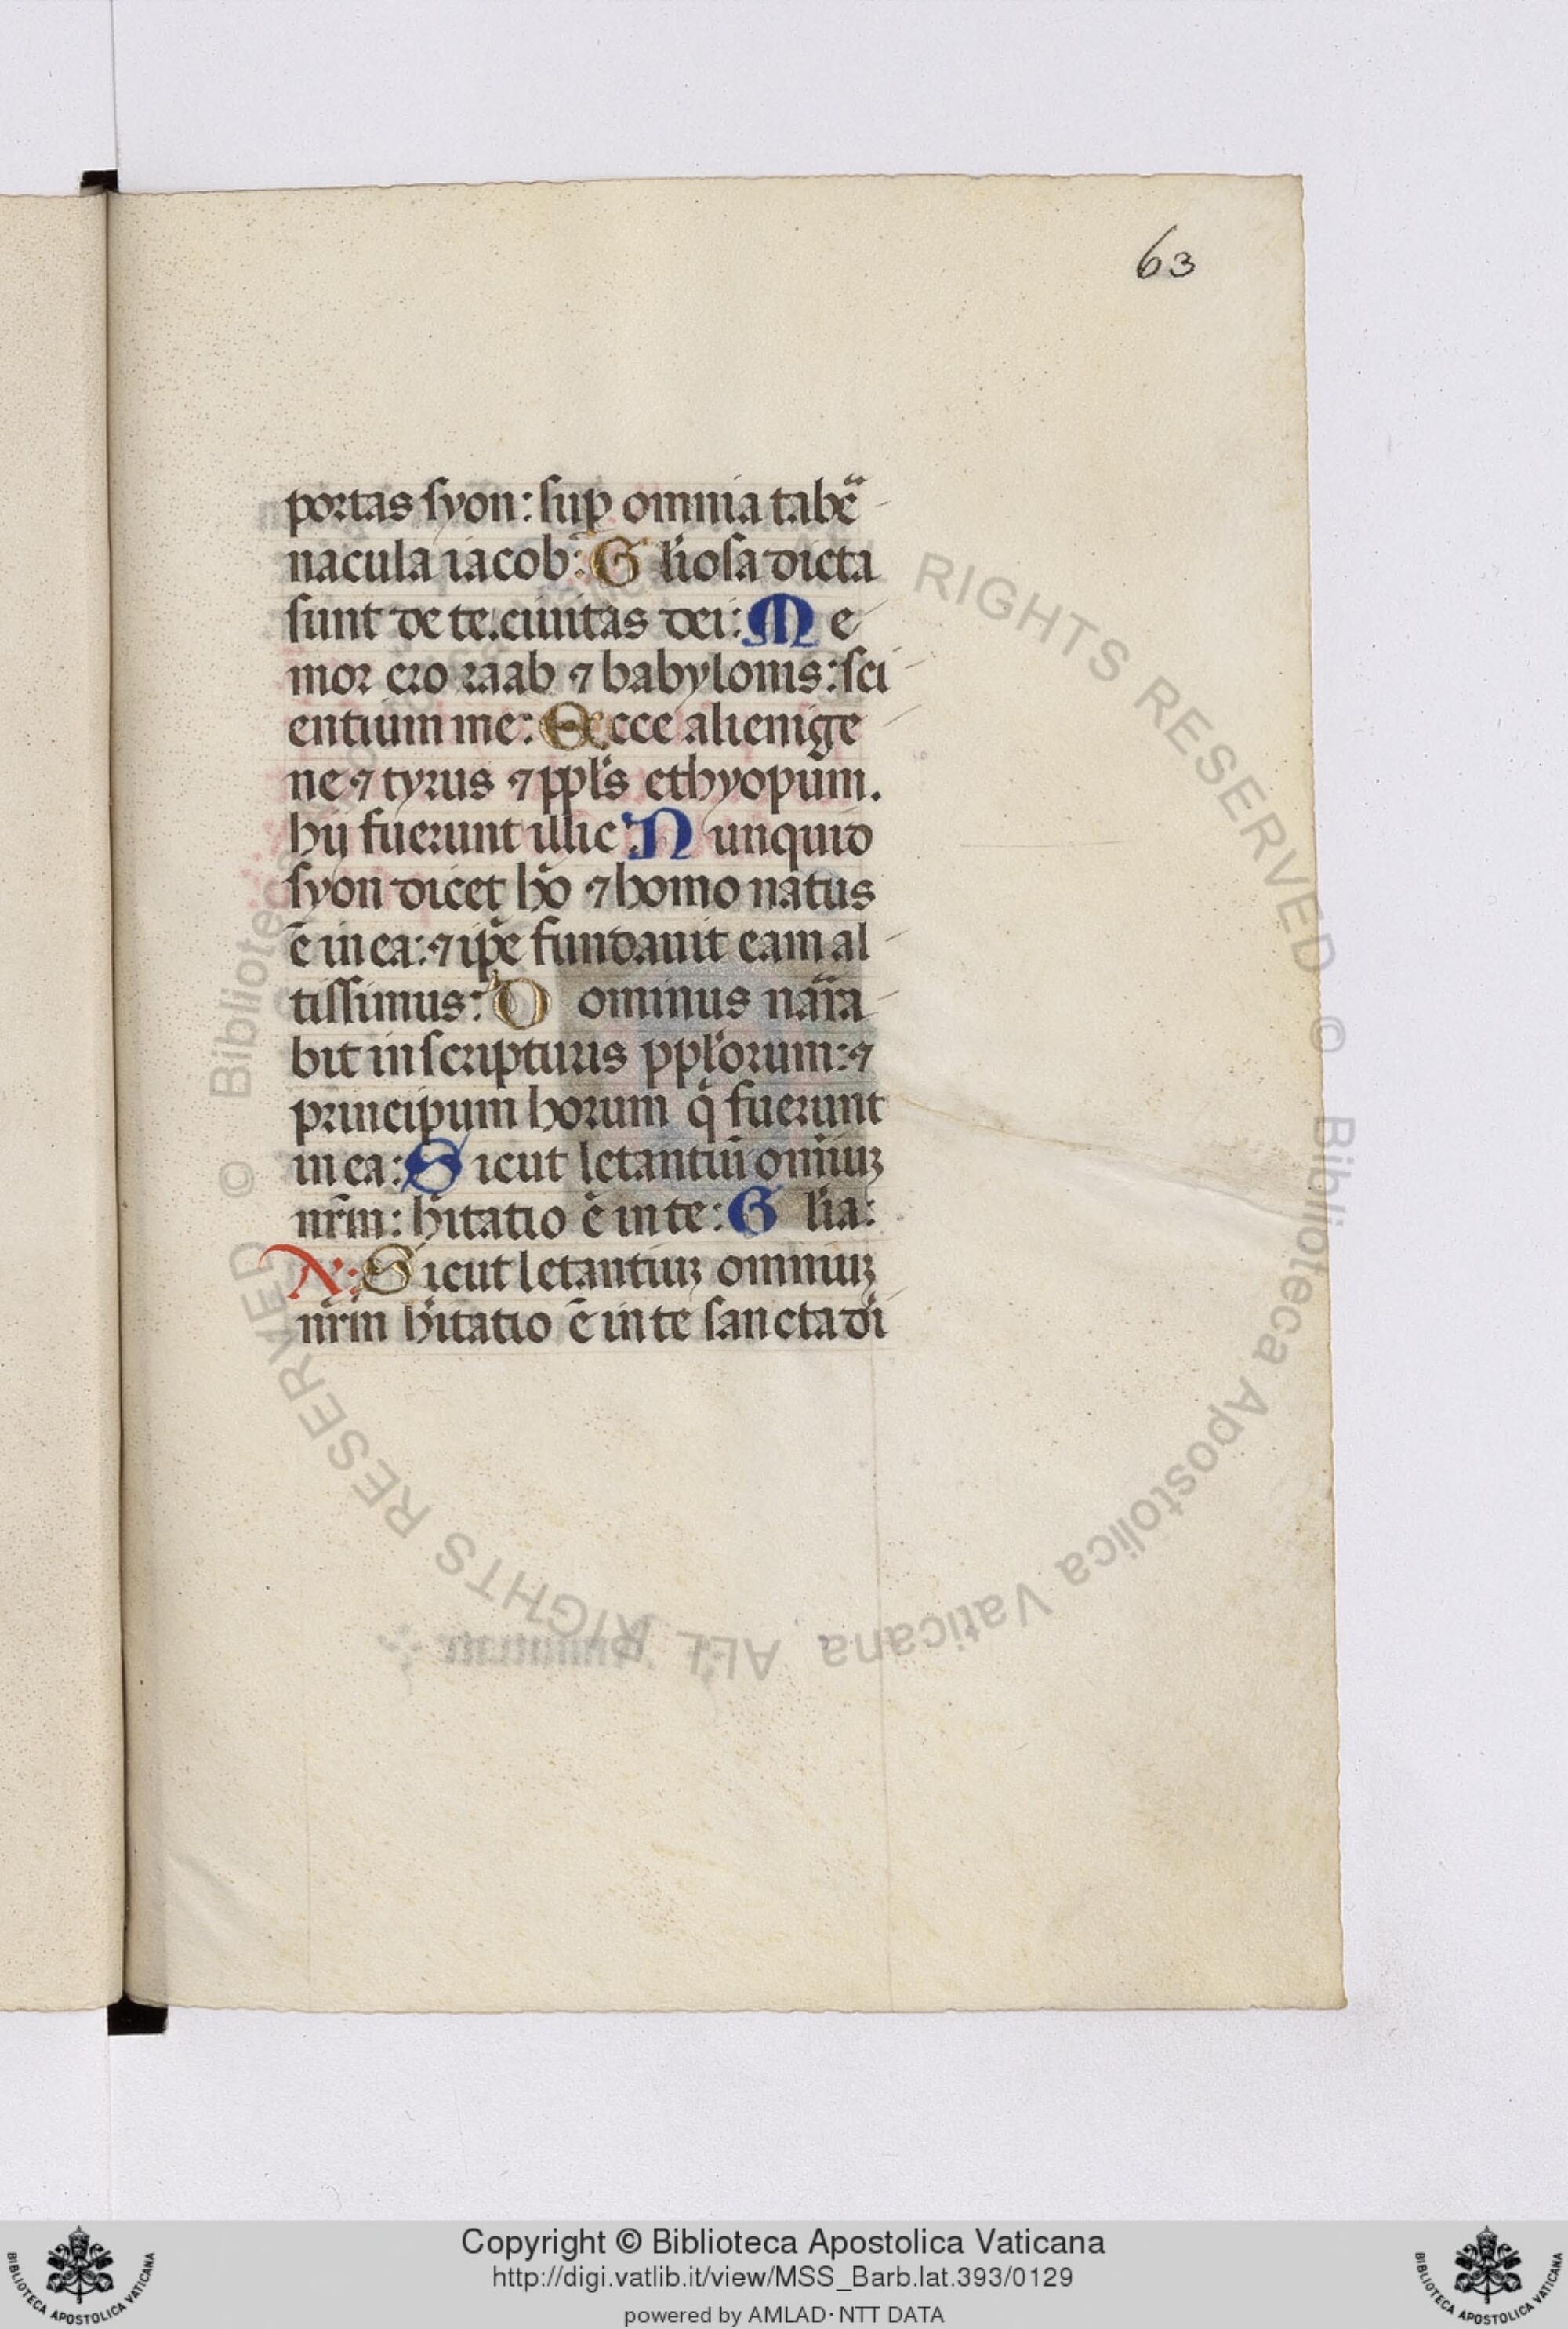 63
portas syon: sup omnia tabẽ
nacula iacob: Gl'iosa dicta
sunt de te. ciuitas dei: Me
mor ero raab ⁊ babylonis: sci
entium me: Ecce alienige
ne ⁊ tyrus ⁊ ppl's ethyopum.
hij fuerunt illic: Nunquid
syon dicet hõ ⁊ homo natus
ẽ in ea: ⁊ ip̃e fundauit eam al
tissimus: Dominus narra
bit in scripturis ppl'orum: ⁊
principum horum q̃ fuerunt
in ea: Sicut letantiũ omĩuꝫ
nr̃m: h̃itatio ẽ in te: Gl'ia:
A: Sicut letantiuꝫ omniuꝫ
nr̃m h̃itatio ẽ in te sancta di
© Biblioteca Apostolica Vaticana ALL RIGHTS RESERVED
© Biblioteca Apostolica Vaticana ALL RIGHTS RESERVED
Copyright © Biblioteca Apostolica Vaticana
http://digi.vatlib.it/view/MSS_Barb.lat.393/0129
powered by AMLAD · NTT DATA
BIBLIOTECA APOSTOLICA VATICANA
BIBLIOTECA APOSTOLICA VATICANA